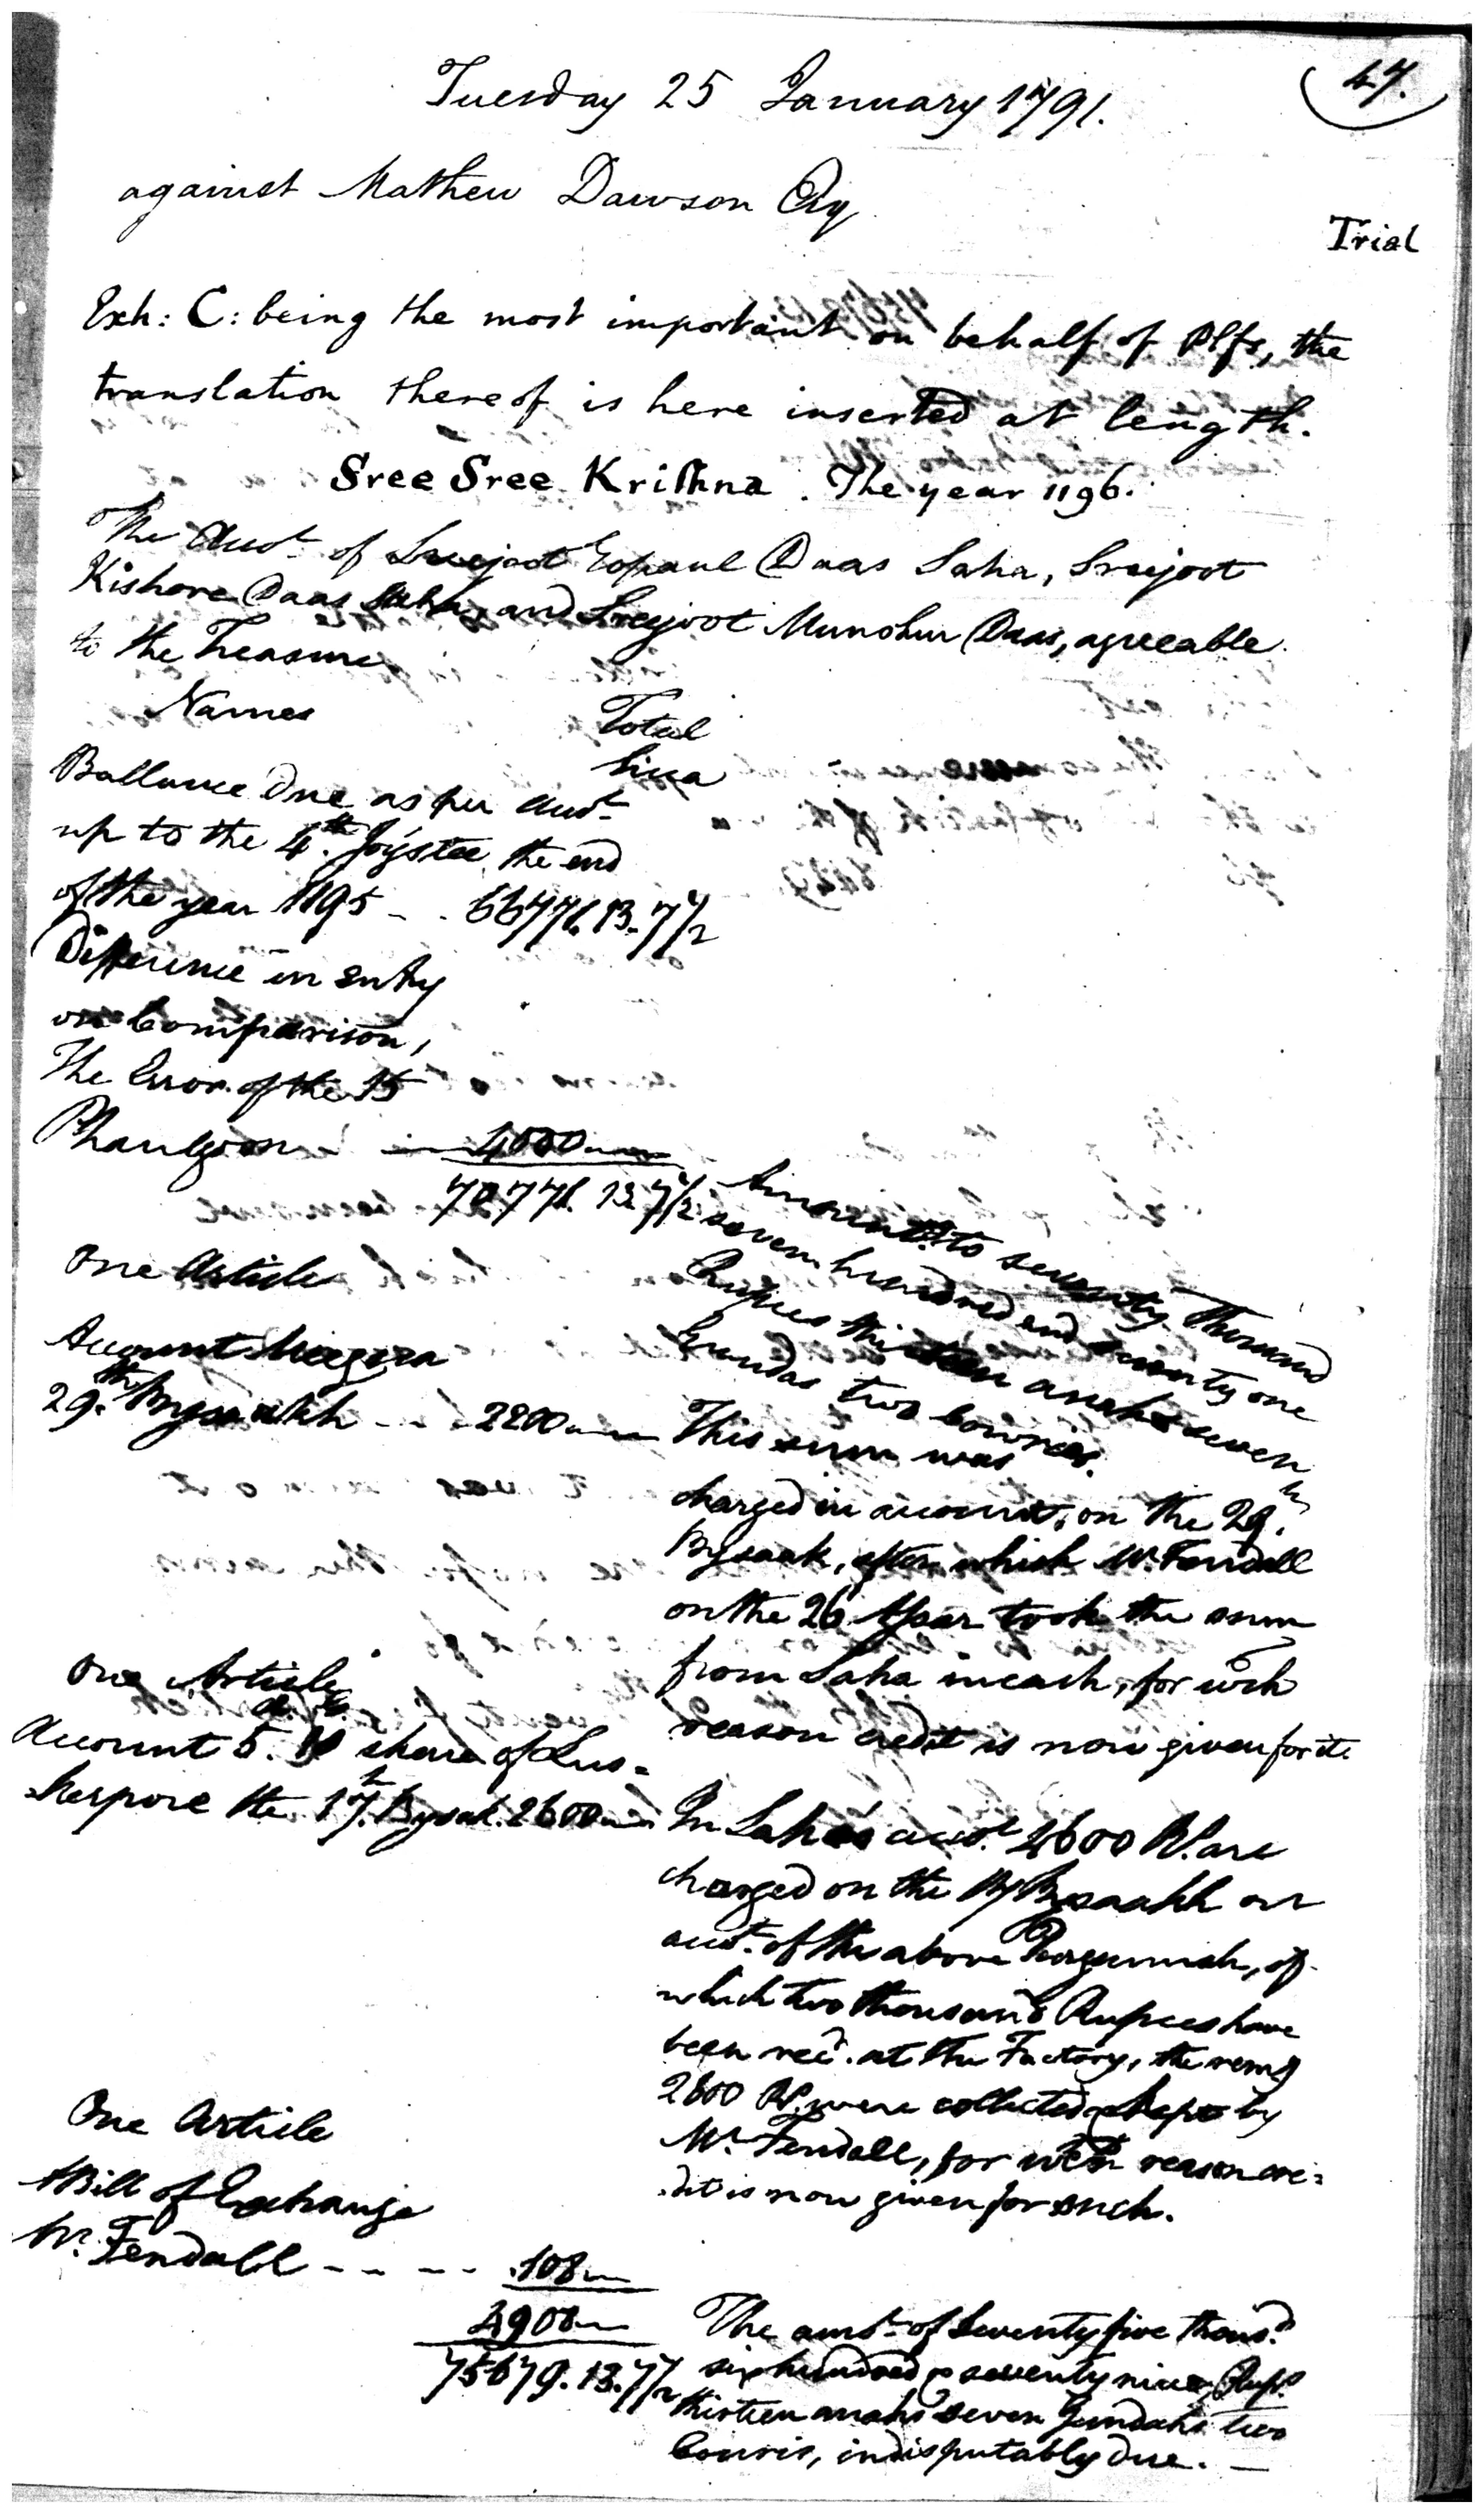 Tuesday 25 January 1791.
47.
against Mathew Dawson Esq
Trial
Exh: C: being the most important on behalf of Plfs, the
translation thereof is here inserted at length.
Sree Sree Krishna. The year 1196.
The Acct. of Sreejoot Gopaul Daas Saha, Sreejoot
Kishore Daas Saha, and Sreejoot Munohur Daas, agreeable
to the Treasure
Names Total
Sicca
Ballance due as per acct.
up to the 4th Joystee, the end
of the year 1195 - - 66771. 13. 7 1/2
Difference in entry
on Comparison,
The Error of the 15
Phaulgoon - 4000
70771. 13. 7 1/2
Amount to seventy Thousand
seven hundred and seventy one
Rupees thirteen anahs seven
Gundas two Cowries.
One Article
Account
29th Bysaakh - - 2200
This sum was
charged in account, on the 29th
Bysaak, after which Mr. Fendall
on the 26 Assar took the sum
from Saha in cash, for wch
reason credit is now given for it
One Article
Account 5. share of Lus=
kerpore the 17th Bysak. 2600
In Saha's acct. 4600 Rs. are
charged on the 17 Bysaakh on
acct. of the above Pergunnah, of
which two thousand Rupees have
been recd. at the Factory, the remg
2600 Rs. were collected & kept by
Mr. Fendall, for wch reason cre=
dit is now given for such.
One Article
Bill of Exchange
Mr. Fendall - - - - 108
4908
75679. 13. 7 1/2
The amt. of Seventy five thousd.
six hundred & seventy nine Rups.
thirteen anahs seven Gundahs two
Couris, indisputably due. -